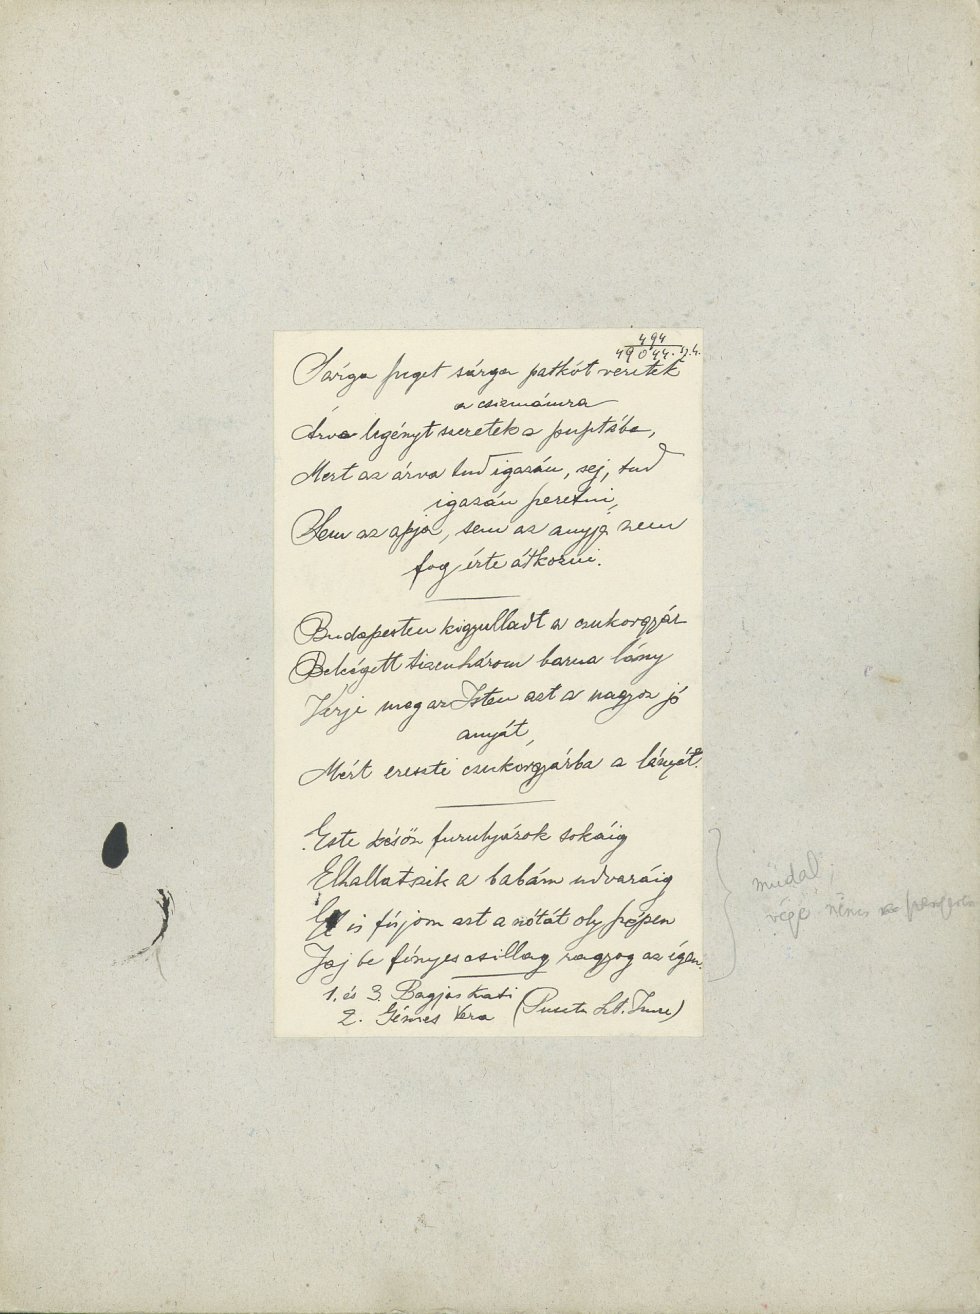 494
Sárga szeget sárga patkót veretek
a csizmámra
Árva legényt szeretek a
Mert az árva tud igazán, sej, tud
igazán szeretni,
Sem az apja, sem az anyja nem
fog érte átkozni.
Budapesten kigyulladt a czukorgyár
Bekégett tizenhárom barna lány
Verje meg az Isten azt a nagyon jó
anyát,
Mért ereszti czukorgyárba a lányát.
Este késön furulyázok sokáig
Elhallatszik a babám udvaráig
is fújom azt a nótát oly szépen
Jaj be fényes csillag ragyog az égen.
1. és 3. Bagjas Kati
2. Gémes Vera (Puszta Szt. Imre)
müdal,
vége nincs